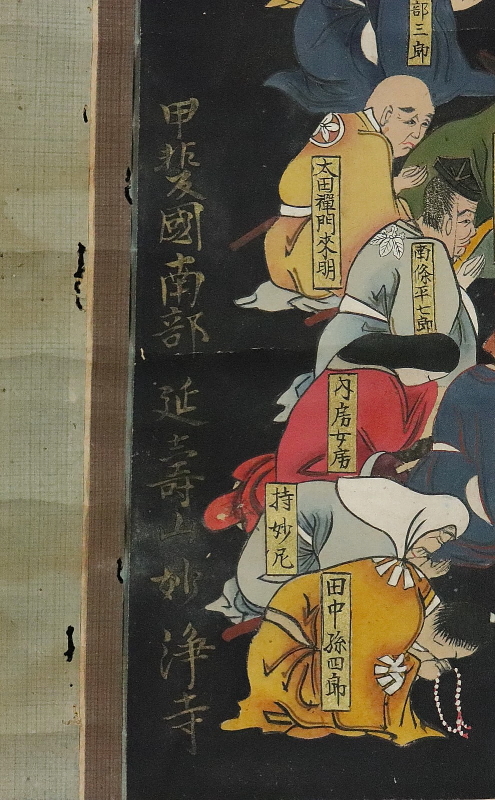 部三郎
太田禪門來明
南條平七郎
内房女房
持妙尼
田中孫四郎
甲斐國南部 延壽山 妙淨寺